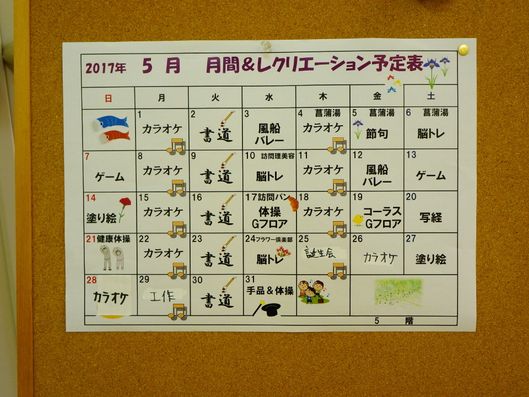 2017年 5月 月間&レクリエーション予定表
日 月 火 水 木 金 土
1 2 3 4 菖蒲湯 5 菖蒲湯 6 菖蒲湯
カラオケ 書道 風船バレー カラオケ 節句 脳トレ
7 8 9 10 訪問理美容 11 12 13
ゲーム カラオケ 書道 脳トレ カラオケ 風船バレー ゲーム
14 15 16 17訪問パン 18 19 20
塗り絵 カラオケ 書道 体操Gフロア カラオケ コーラスGフロア 写経
21 健康体操 22 23 24フラワー倶楽部 25 26 27
カラオケ 書道 脳トレ 誕生会 カラオケ 塗り絵
28 29 30 31
カラオケ 工作 書道 手品&体操
5 階